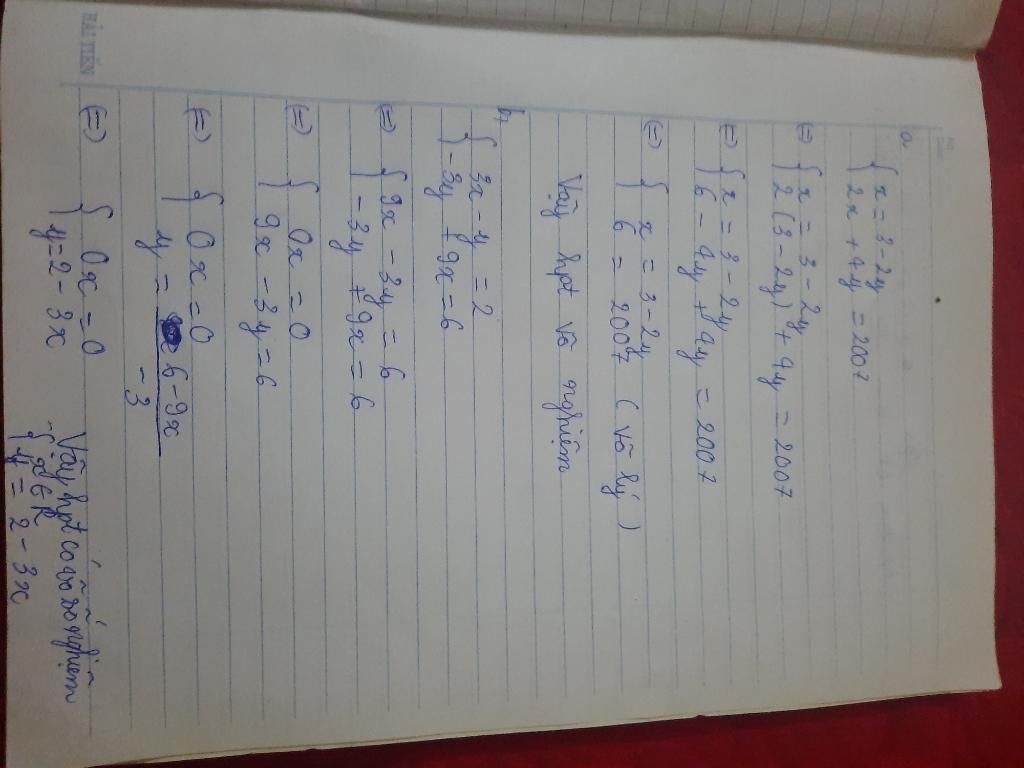 HẢI TIẾN
a
{ x = 3 - 2y
{ 2x + 4y = 2007
(=) { x = 3 - 2y
{ 2 (3 - 2y) + 4y = 2007
(=) { x = 3 - 2y
{ 6 - 4y + 4y = 2007
(=) { x = 3 - 2y
{ 6 = 2007 ( vô lý )
Vậy hpt vô nghiệm
b,
{ 3x - y = 2
{ -3y + 9x = 6
(=) { 9x - 3y = 6
{ -3y + 9x = 6
(=) { 0x = 0
{ 9x - 3y = 6
(=) { 0x = 0
{ y = 6 - 9x
-3
(=) { 0x = 0
{ y = 2 - 3x
Vậy hpt có vô số nghiệm
{ x ∈ R
{ y = 2 - 3x